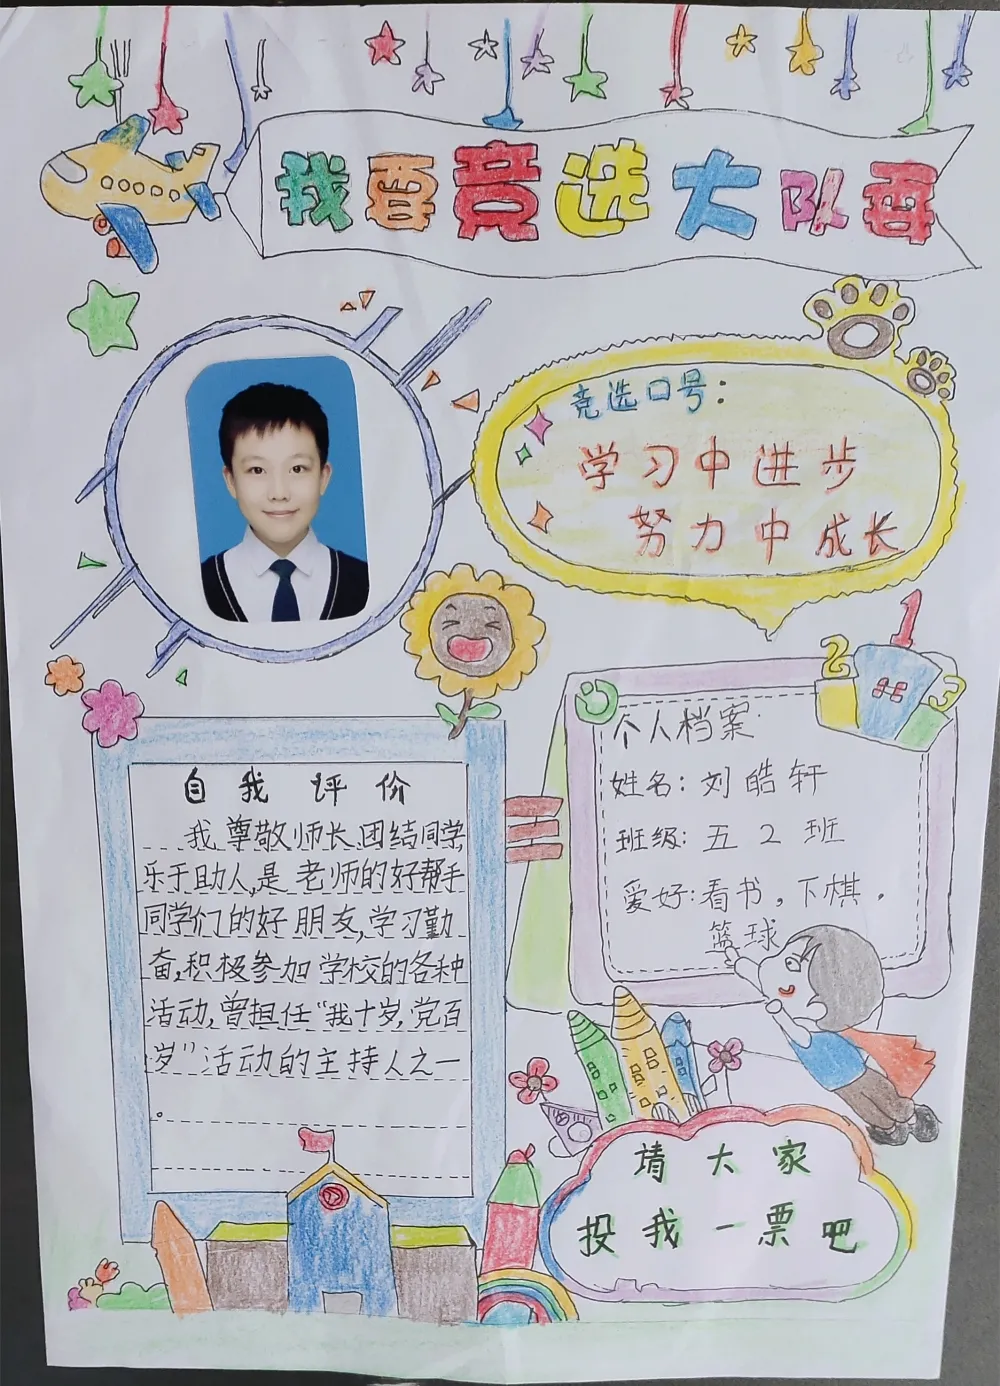 我要竞选大队委
竞选口号：
学习中进步
努力中成长
自我评价
我尊敬师长,团结同学,
乐于助人,是老师的好帮手
同学们的好朋友,学习勤
奋,积极参加学校的各种
活动,曾担任“我十岁,党百
岁”活动的主持人之一
。
1
2
3
个人档案:
姓名：刘皓轩
班级：五2班
爱好：看书。下棋。
篮球
请大家
投我一票吧